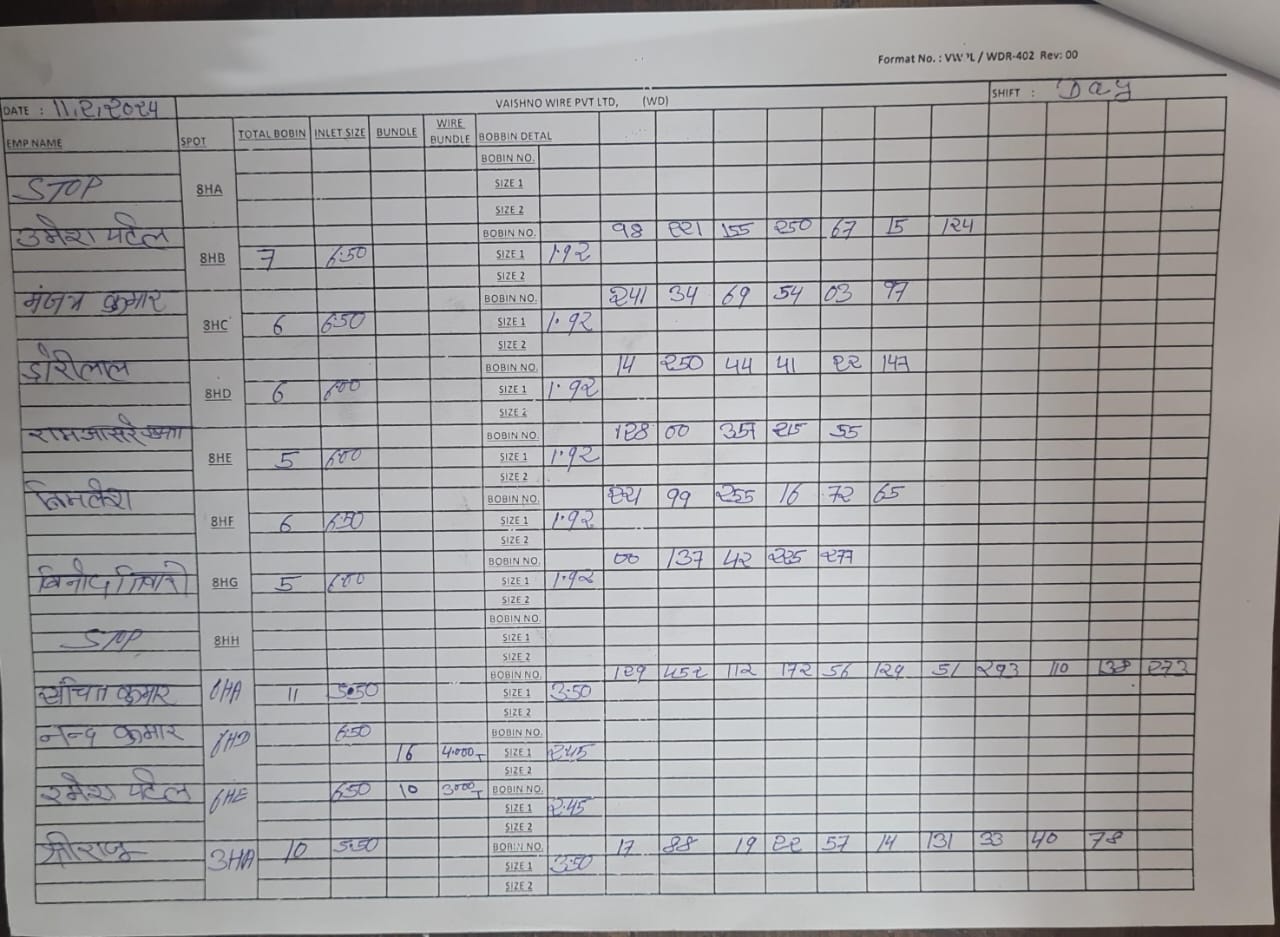 Format No. : VWPL / WDR-402 Rev: 00
DATE : 11.2.2024 VAISHNO WIRE PVT LTD, (WD) SHIFT : Day
EMP NAME SPOT TOTAL BOBIN INLET SIZE BUNDLE WIRE BUNDLE BOBBIN DETAL
BOBIN NO.
STOP 8HA SIZE 1
SIZE 2
उमेश पटेल BOBIN NO. 98 221 155 250 67 15 124
8HB 7 6.50 SIZE 1 1.92
SIZE 2
कुमार BOBIN NO. 241 34 69 54 03 97
8HC 6 6.50 SIZE 1 1.92
SIZE 2
डोरीलाल BOBIN NO. 14 250 44 41 22 147
8HD 6 6.00 SIZE 1 1.92
SIZE 2
BOBIN NO. 128 00 357 215 55
8HE 5 6.00 SIZE 1 1.92
SIZE 2
बिमलेश BOBIN NO. 221 99 255 16 72 65
8HF 6 6.50 SIZE 1 1.92
SIZE 2
BOBIN NO. 00 137 42 225 277
बिनोद तिवारी 8HG 5 6.00 SIZE 1 1.92
SIZE 2
BOBIN NO.
STOP 8HH SIZE 1
SIZE 2
BOBIN NO. 129 452 112 172 56 129 51 293 110 138 273
कुमार 6HA 11 5.50 SIZE 1 3.50
SIZE 2
नन्द कुमार 6HD 6.50 BOBIN NO.
16 4.000T SIZE 1 2.45
SIZE 2
रमेश पटेल 6HE 6.50 10 3000T BOBIN NO.
SIZE 1 2.45
SIZE 2
श्रीराजू 3HA 10 5.50 BOBIN NO. 17 88 19 22 57 14 131 33 40 78
SIZE 1 3.50
SIZE 2